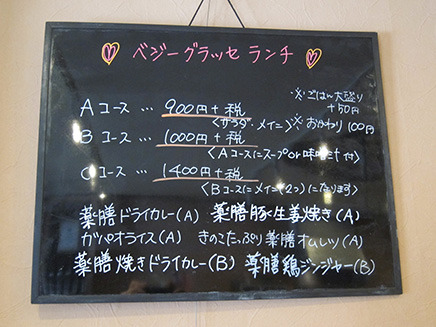 ベジーグラッセ ランチ
Aコース … 900円+税
※ごはん大盛り
+50円
<サラダ・メイン>
※おかわり100円
Bコース … 1000円+税
<Aコースにスープor味噌汁付>
Cコース … 1400円+税
<Bコースにメインが2つになります>
薬膳ドライカレー(A) 薬膳豚生姜焼き(A)
ガパオライス(A) きのこたっぷり薬膳オムレツ(A)
薬膳焼きドライカレー(B) 薬膳鶏ジンジャー(B)